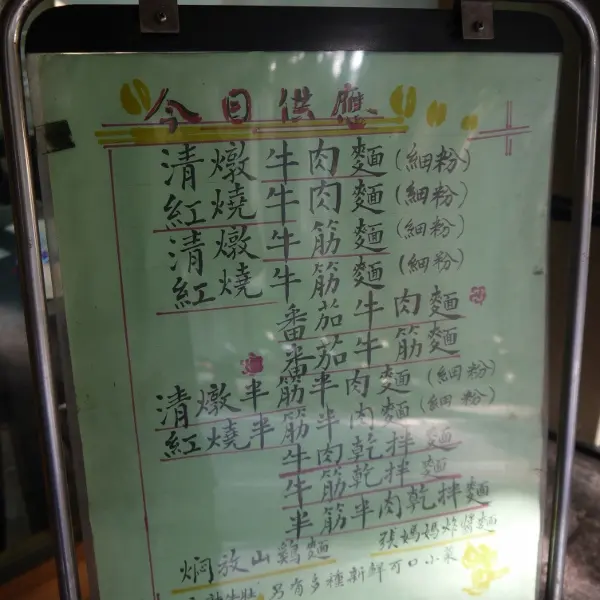 今日供應
清燉牛肉麵(細粉)
紅燒牛肉麵(細粉)
清燉牛筋麵(細粉)
紅燒牛筋麵(細粉)
番茄牛肉麵
番茄牛筋麵
清燉半筋半肉麵(細粉)
紅燒半筋半肉麵(細粉)
牛肉乾拌麵
牛筋乾拌麵
半筋半肉乾拌麵
焖放山鷄麵 張媽媽炸醬麵
另有多種新鮮可口小菜